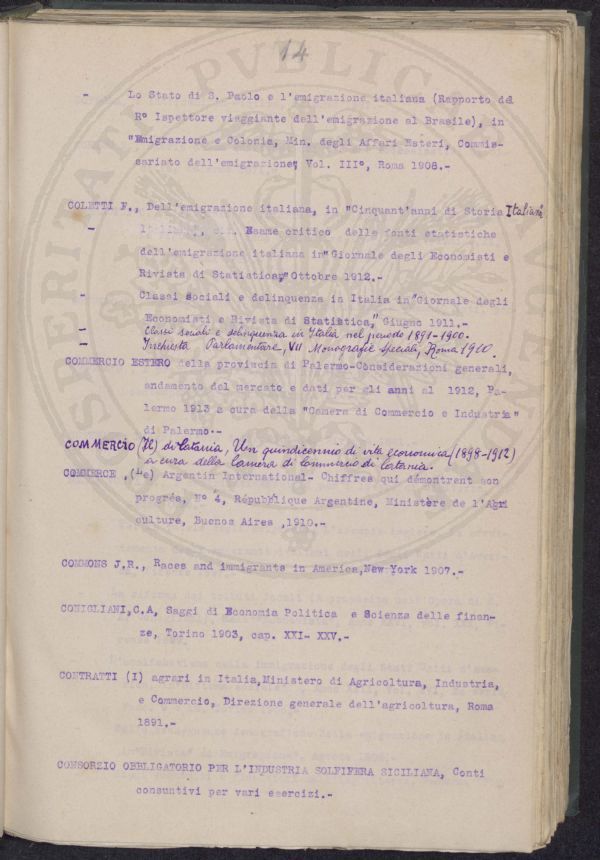 14
- Lo Stato di S. Paolo e l'emigrazione italiana (Rapporto del
R° Ispettore viaggiante dell'emigrazione al Brasile), in
"Emigrazione e Colonie, Min. degli Affari Esteri, Commis-
sariato dell'emigrazione, Vol. III°, Roma 1908.-
COLETTI F., Dell'emigrazione italiana, in "Cinquant'anni di Storia Italiana
- Esame critico delle fonti statistiche
dell'emigrazione italiana in "Giornale degli Economisti e
Rivista di Statistica," Ottobre 1912.-
- Classi sociali e delinquenza in Italia in "Giornale degli
Economisti e Rivista di Statistica," Giugno 1911.-
- Classi sociali e delinquenza in Italia nel periodo 1891-1900.
- Inchiesta Parlamentare, VII Monografie speciali, Roma 1910.
COMMERCIO ESTERO della provincia di Palermo-Considerazioni generali,
andamento del mercato e dati per gli anni al 1912, Pa-
lermo 1913 a cura della "Camera di Commercio e Industria"
di Palermo.-
COMMERCIO (Il) di Catania, Un quindicennio di vita economica (1898-1912)
a cura della Camera di Commercio di Catania.
COMMERCE ,(Le) Argentin International- Chiffres qui démontrent son
progrés, N° 4, Républiquе Argentine, Ministère de l'Agri
culture, Buenos Aires ,1910.-
COMMONS J.R., Races and immigrants in America,New York 1907.-
CONIGLIANI,C.A, Saggi di Economia Politica e Scienza delle finan-
ze, Torino 1903, cap. XXI- XXV.-
CONTRATTI (I) agrari in Italia,Ministero di Agricoltura, Industria,
e Commercio, Direzione generale dell'agricoltura, Roma
1891.-
CONSORZIO OBBLIGATORIO PER L'INDUSTRIA SOLFIFERA SICILIANA, Conti
consuntivi per vari esercizi.-